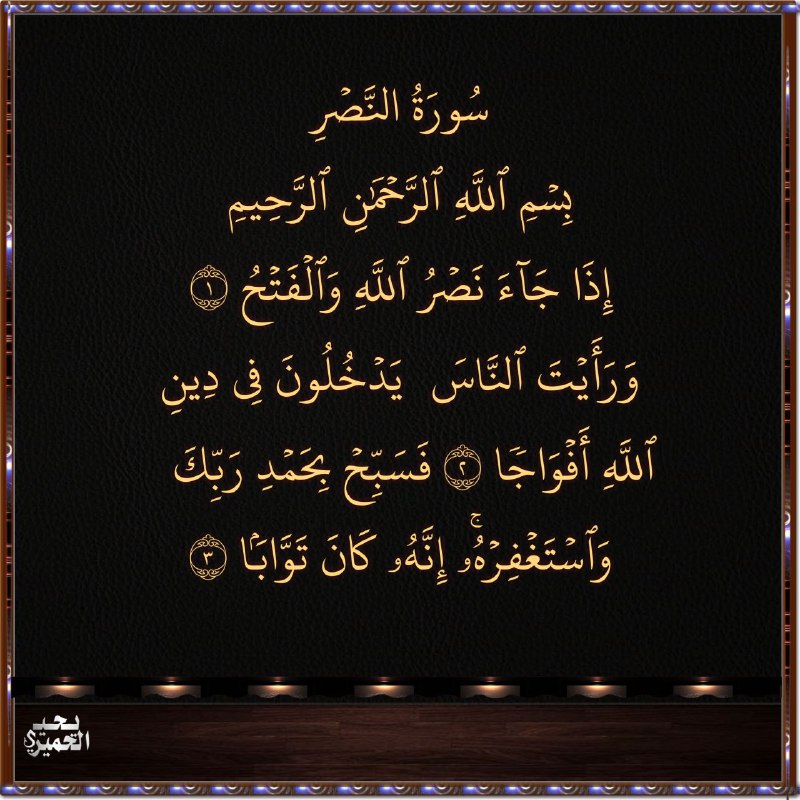 سُورَةُ النَّصْرِ
بِسْمِ ٱللَّهِ ٱلرَّحْمَٰنِ ٱلرَّحِيمِ
إِذَا جَآءَ نَصْرُ ٱللَّهِ وَٱلْفَتْحُ ١
وَرَأَيْتَ ٱلنَّاسَ يَدْخُلُونَ فِى دِينِ
ٱللَّهِ أَفْوَاجًا ٢ فَسَبِّحْ بِحَمْدِ رَبِّكَ
وَٱسْتَغْفِرْهُ ۚ إِنَّهُۥ كَانَ تَوَّابًۢا ٣